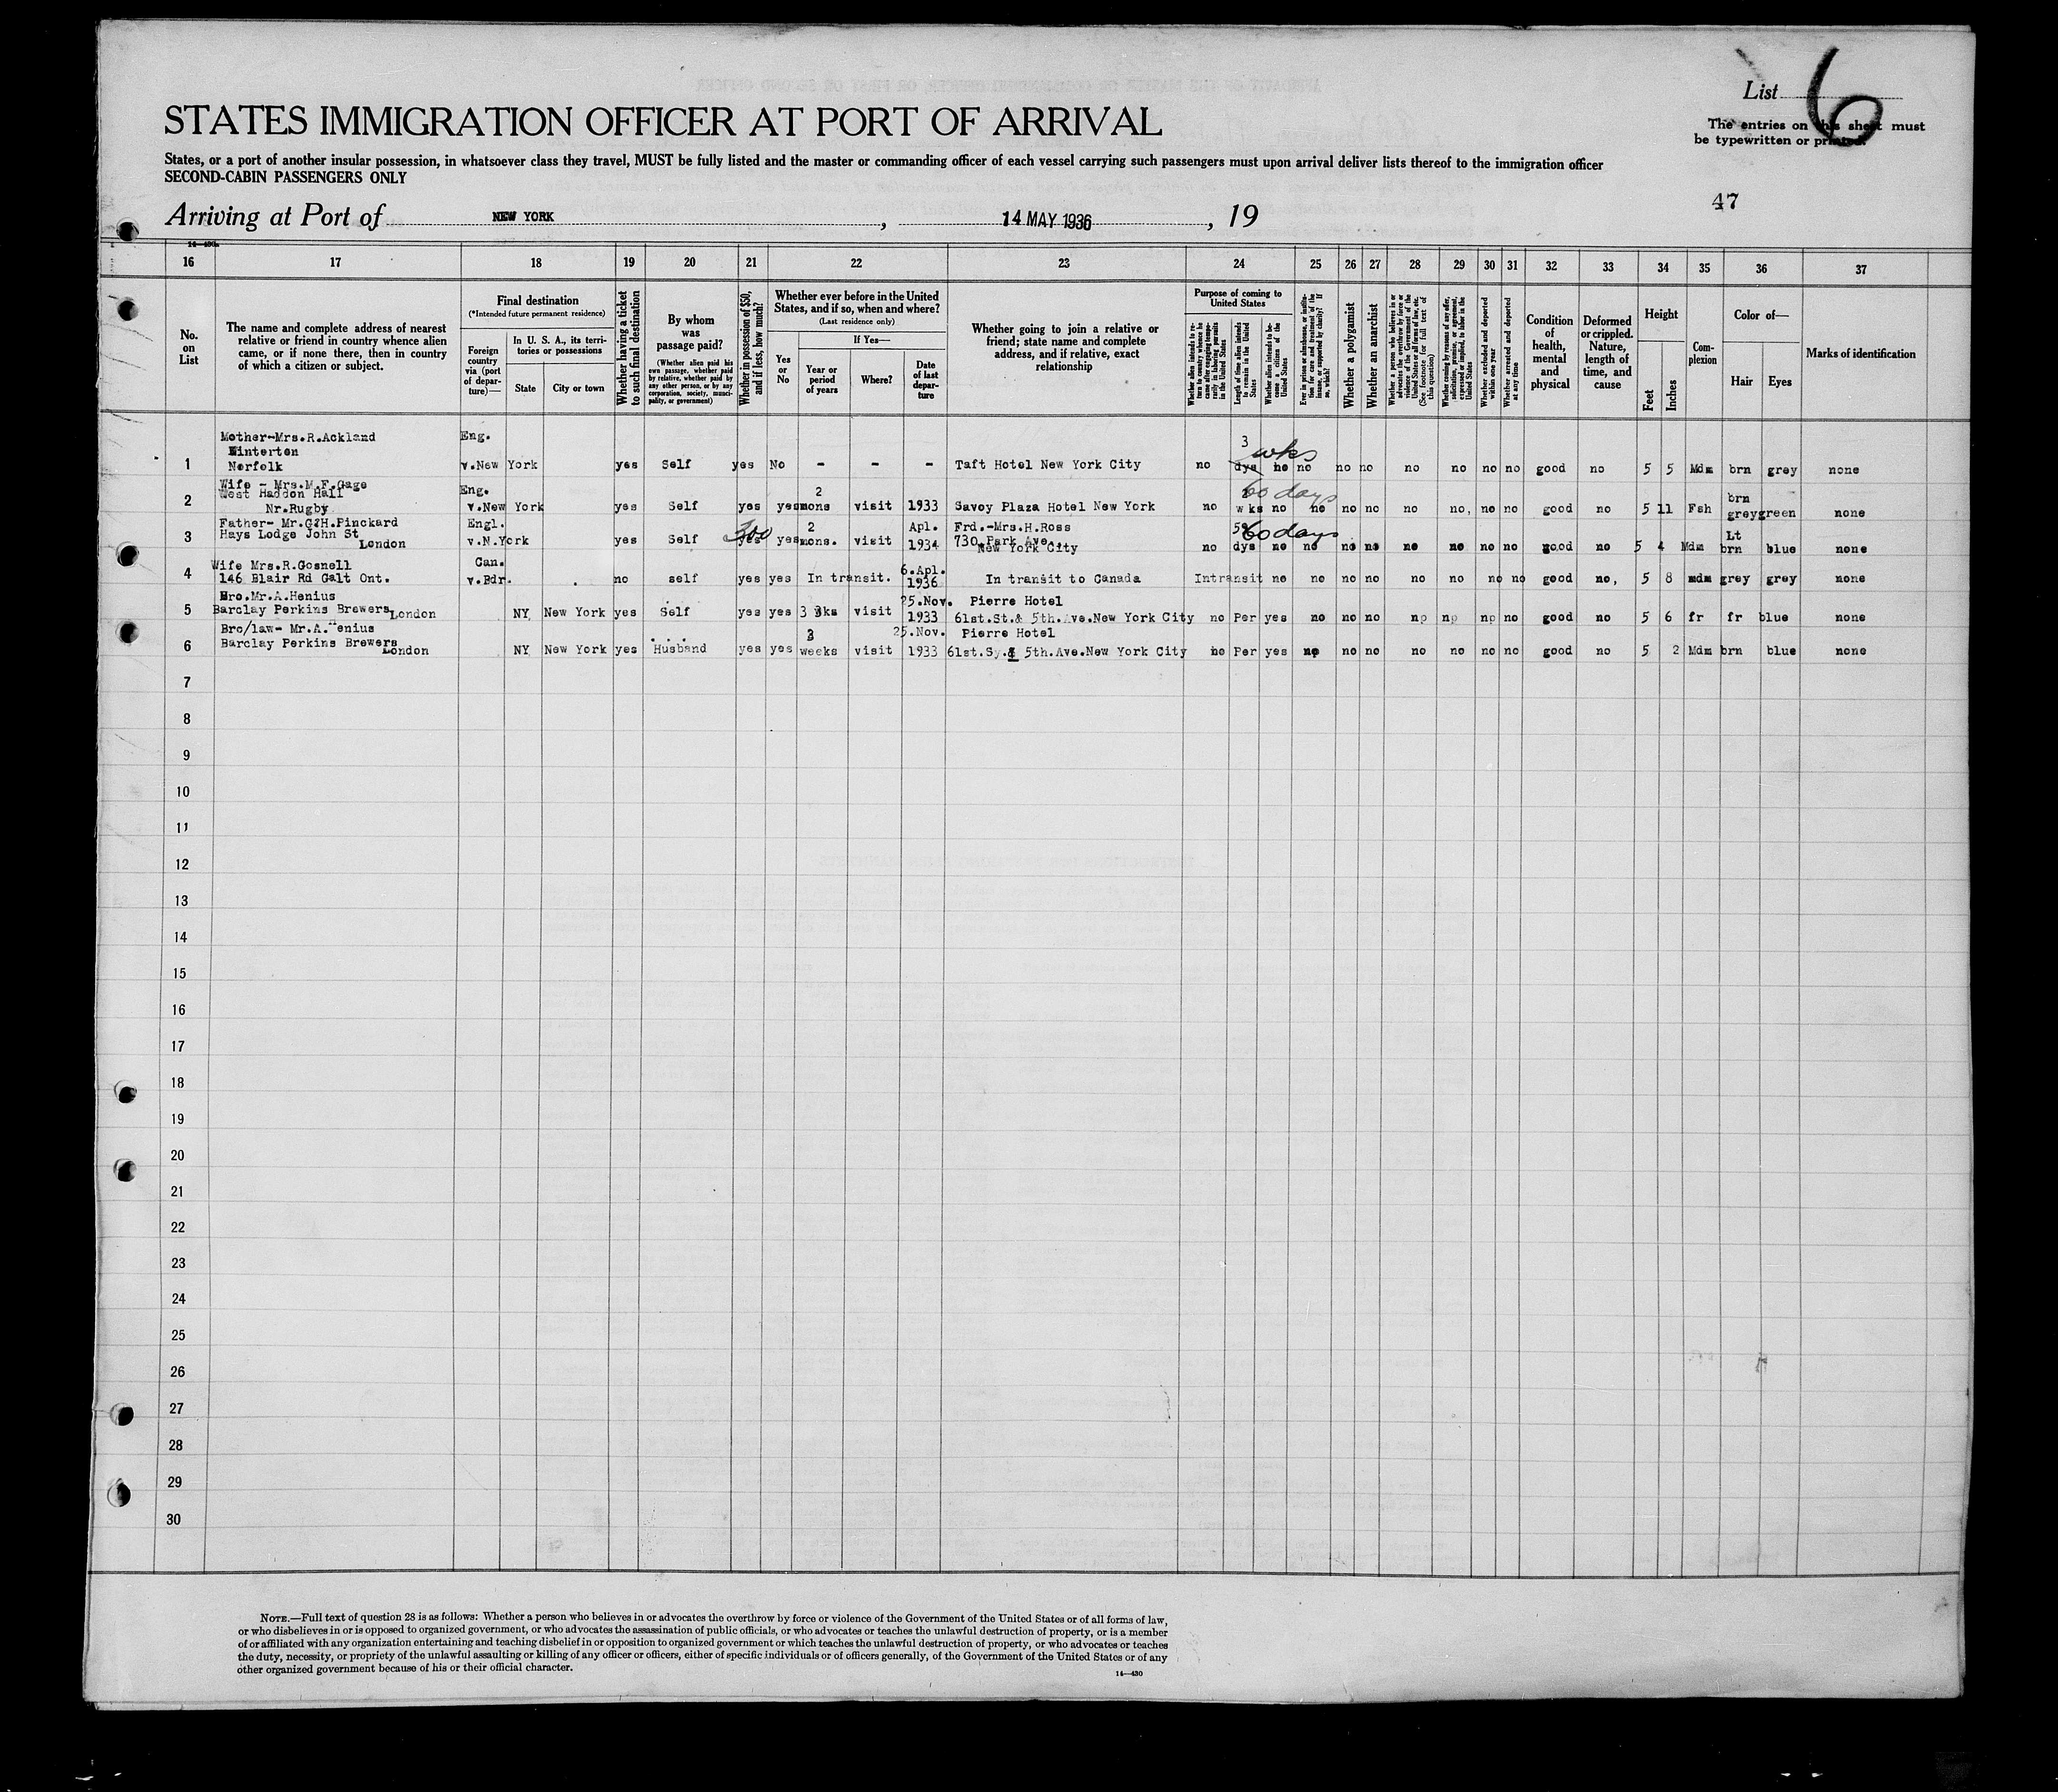 List 6
The entries on this sheet must
be typewritten or printed.
STATES IMMIGRATION OFFICER AT PORT OF ARRIVAL
States, or a port of another insular possession, in whatsoever class they travel, MUST be fully listed and the master or commanding officer of each vessel carrying such passengers must upon arrival deliver lists thereof to the immigration officer
SECOND-CABIN PASSENGERS ONLY
47
Arriving at Port of NEW YORK, 14 MAY 1936, 19
14—430
16 17 18 19 20 21 22 23 24 25 26 27 28 29 30 31 32 33 34 35 36 37
No. on List
The name and complete address of nearest relative or friend in country whence alien came, or if none there, then in country of which a citizen or subject.
Final destination
(*Intended future permanent residence)
Foreign country via (port of departure)—
In U. S. A., its territories or possessions
State
City or town
Whether having a ticket to such final destination
By whom was passage paid?
(Whether alien paid his own passage, whether paid by relative, whether paid by any other person, or by any corporation, society, municipality, or government)
Whether in possession of $50, and if less, how much?
Whether ever before in the United States, and if so, when and where?
(Last residence only)
Yes or No
If Yes—
Year or period of years
Where?
Date of last departure
Whether going to join a relative or friend; state name and complete address, and if relative, exact relationship
Purpose of coming to United States
Whether alien intends to return to country whence he came after engaging temporarily in laboring pursuits in the United States
Length of time alien intends to remain in the United States
Whether alien intends to become a citizen of the United States
Ever in prison or almshouse, or institution for care and treatment of the insane, or supported by charity? If so, which?
Whether a polygamist
Whether an anarchist
Whether a person who believes in or advocates the overthrow by force or violence of the Government of the United States or all forms of law, etc. (See footnote for full text of this question)
Whether coming by reason of any offer, solicitation, promise, or agreement, expressed or implied, to labor in the United States
Whether excluded and deported within one year
Whether arrested and deported at any time
Condition of health, mental and physical
Deformed or crippled. Nature, length of time, and cause
Height
Feet
Inches
Complexion
Color of—
Hair
Eyes
Marks of identification
1 Mother-Mrs.R.Ackland Winterton Norfolk Eng. v.New York yes Self yes No - - - Taft Hotel New York City no 3 dys wks no no no no no no no no good no 5 5 Mdm brn grey none
2 Wife - Mrs.M.F.Gage West Haddon Hall Nr.Rugby Eng. v.New York yes Self yes yes 2 mons visit 1933 Savoy Plaza Hotel New York no wks 60 days no no no no no no, no no good no 5 11 Fsh brn grey green none
3 Father- Mr.G.H.Pinckard Hays Lodge John St London Engl. v.N.York yes Self yes 300 yes 2 mons. visit Apl. 1934 Frd.-Mrs.H.Ross 730 Park Ave. New York City no 59 dys 60 days no no no no no no no no good no 5 4 Mdm Lt brn blue none
4 Wife Mrs.R.Gosnell 146 Blair Rd Galt Ont. Can. v.Bdr. no self yes yes In transit. 6.Apl. 1936 In transit to Canada Intransit no no no no no no no no good no, 5 8 mdm grey grey none
5 Bro.Mr.A.Henius Barclay Perkins Brewers London NY New York yes Self yes yes 3 wks visit 25.Nov. 1933 Pierre Hotel 61st.St.& 5th.Ave.New York City no Per yes no no no no no no no good no 5 6 fr fr blue none
6 Bro/law- Mr.A.Henius Barclay Perkins Brewers London NY New York yes Husband yes yes 3 weeks visit 25.Nov. 1933 Pierre Hotel 61st.Sy.& 5th.Ave.New York City no Per yes no no no no no no no good no 5 2 Mdm brn blue none
7
8
9
10
11
12
13
14
15
16
17
18
19
20
21
22
23
24
25
26
27
28
29
30
NOTE.—Full text of question 28 is as follows: Whether a person who believes in or advocates the overthrow by force or violence of the Government of the United States or of all forms of law,
or who disbelieves in or is opposed to organized government, or who advocates the assassination of public officials, or who advocates or teaches the unlawful destruction of property, or is a member
of or affiliated with any organization entertaining and teaching disbelief in or opposition to organized government or which teaches the unlawful destruction of property, or who advocates or teaches
the duty, necessity, or propriety of the unlawful assaulting or killing of any officer or officers, either of specific individuals or of officers generally, of the Government of the United States or of any
other organized government because of his or their official character.
14—430